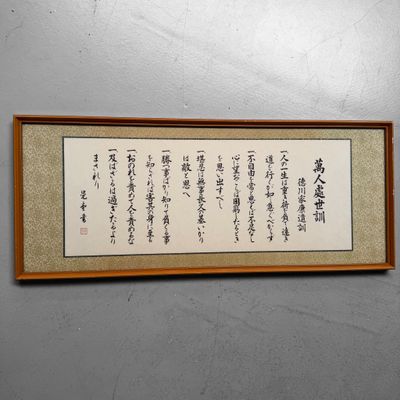 萬人處世訓
徳川家康遺訓
一人の一生は重き荷を負て遠き
道を行くが如し急ぐべからず
一不自由を常と思へば不足なし
心に望おこらば困窮したるとき
を思い出すべし
一堪忍は無事長久の基いかり
は敵と思へ
一勝つ事ばかり知りて負くる事
を知らざれば害其の身に至る
一おのれを責めて人を責めるな
一及ばざるは過ぎたるより
まされり
書